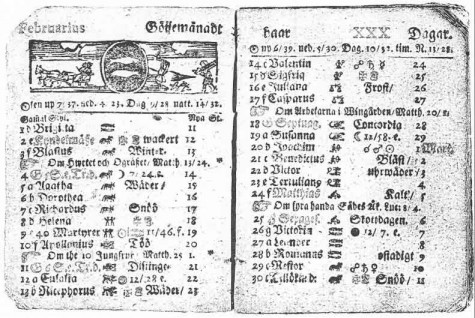 Februarius Göijemånadt
Solen up 7/37. ned. 4. 23. Dag 9/28 natt. 14/32.
Gamul Styl. Nya St.
1 d Brigita 11
2 e Kyndelmäße wackert 12
3 f Blasius Winter. 13
Om Hwetet och Ogräset/ Matth. 13/24.
4 G 5 S. e. Tr. d. 7/24. e. 14
5 a Agatha Wäder/ 15
6 b Dorothea 16
7 c Richardus Snöö 17
8 d Helena 18
9 e 40 Martyrer 11/46. f. 19
10 f Apollonius Töö 20
Om the 10 Jungfrur Matth. 25 1.
11 G 6 S. e. Tr. d. Distinge. 21
12 a Eulalia 12/28 e. 22
13 b Nicephorus Wäder/ 23
haar XXX Dagar.
up 6/39. ned. 5/30. Dag. 10/32. tim. N. 13/28.
14 c Valentin 24
15 d Sigfrid 25
16 e Juliana Frost/ 26
17 f Casparus 27
Om Arbetarna i Wingården/ Matth. 20/
18 G Septuag. Concordia 28
19 a Susanna 11/58. e. 29
20 b Joachim 1 Mart
21 c Benedictus Blåst/ 2
22 d Victor uhrwäder/ 3
23 e Tertulianus 4
24 f Matthias Kalt/ 5
Om fyra handa Sädes Åk. Luc. 8/4.
25 G Sexages. Stottdagen. 6
26 a Victoria 12/7. e. 7
27 a Leander 8
28 b Romanus ostadigt 9
29 c Nestor 10
30 c Snöö/ 11